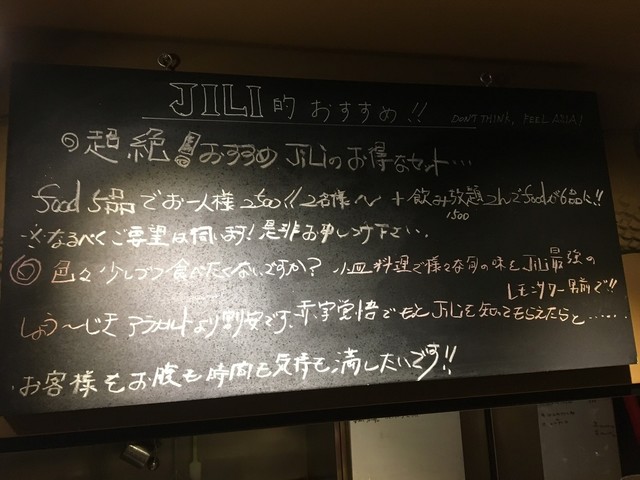 JILI的おすすめ!!
DON'T THINK, FEEL ASIA!
◎超絶!!おすすめJiLiのお得なセット…
food 5品でお一人様2500!!2名様〜 +飲み放題つんでfoodが6品に!!
1500
※なるべくご要望は伺います!是非お申しつけ下さい.
◎色々少しづつ食べたくないですか?小皿料理で様々な旬の味をJiLi最強の
レモンサワー男前で!!
しょう〜じきアラカルトより割安です、赤字覚悟でもとJiLiを知ってもらえたらと……
お客様もお腹も時間も気持も満したいです!!